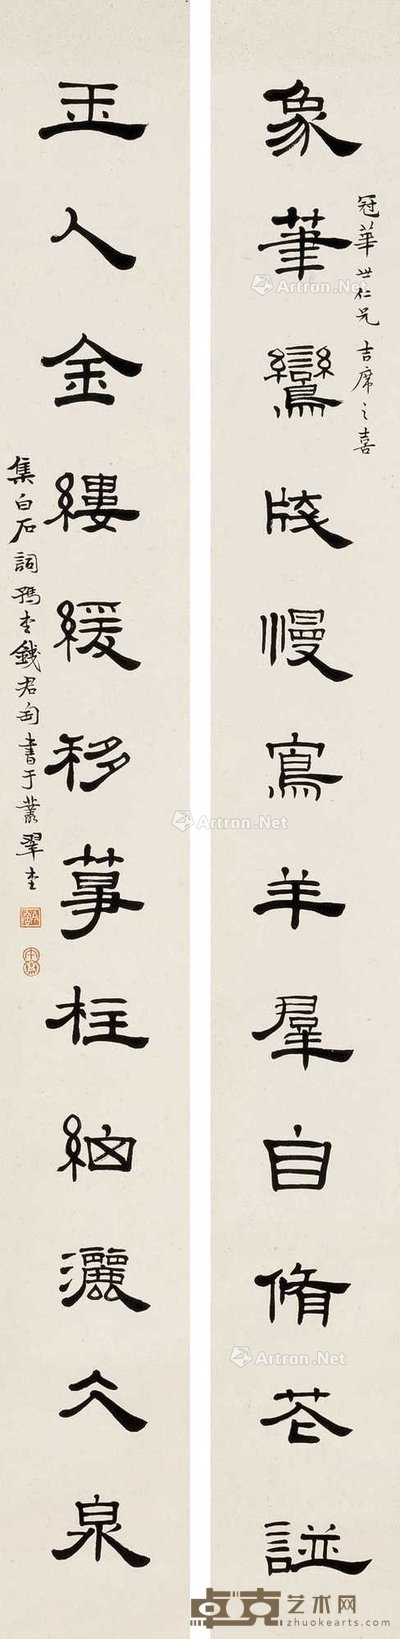 象筆鸞牋慢寫羊羣自脩花譜
冠華世仁兄 吉席之喜
玉人金縷緩移箏柱細灑仌泉
集白石詞豫堂錢君匋書于叢翠堂
Artron.Net
卓克艺术网
zhuokearts.com